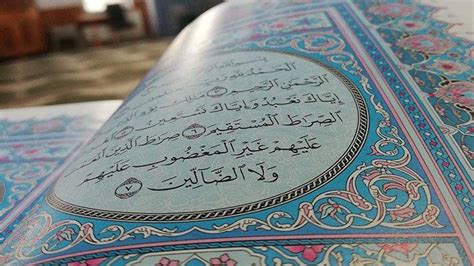 بِسْمِ اللَّهِ
اَلْحَمْدُ لِلَّهِ رَبِّ
اَلرَّحْمٰنِ الرَّحِيمِ
اِيَّاكَ نَعْبُدُ وَاِيَّاكَ نَسْتَعِينُ
الصِّرَاطَ الْمُسْتَقِيمَ ٦ صِرَاطَ الَّذِينَ
عَلَيْهِمْ غَيْرِ الْمَغْضُوبِ عَلَيْهِمْ
وَلَا الضَّالِّينَ ٧